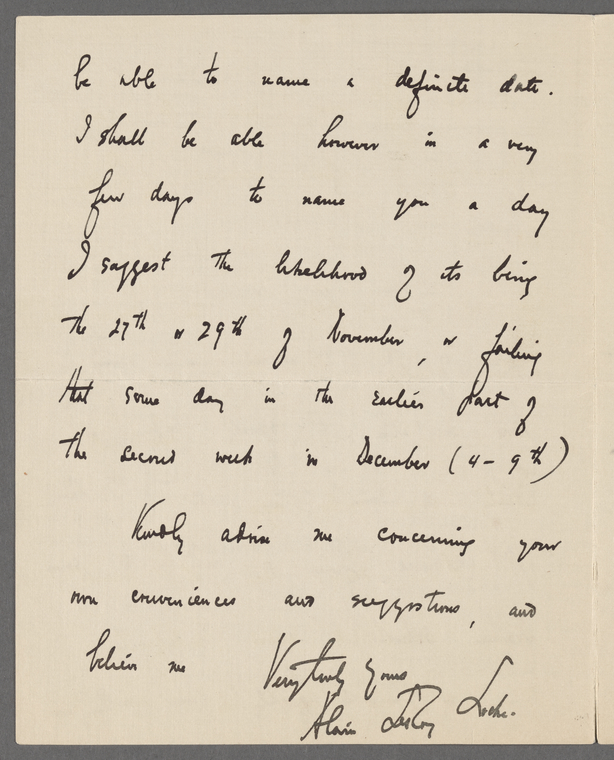 be able to name a definite date.
I shall be able however in a very
few days to name you a day
I suggest the likelihood of its being
the 27th or 29th of November, or failing
that some day in the earlier part of
the second week in December (4-9th)
Kindly advise me concerning your
own conveniences and suggestions, and
believe me Very truly yours
Alain LeRoy Locke.